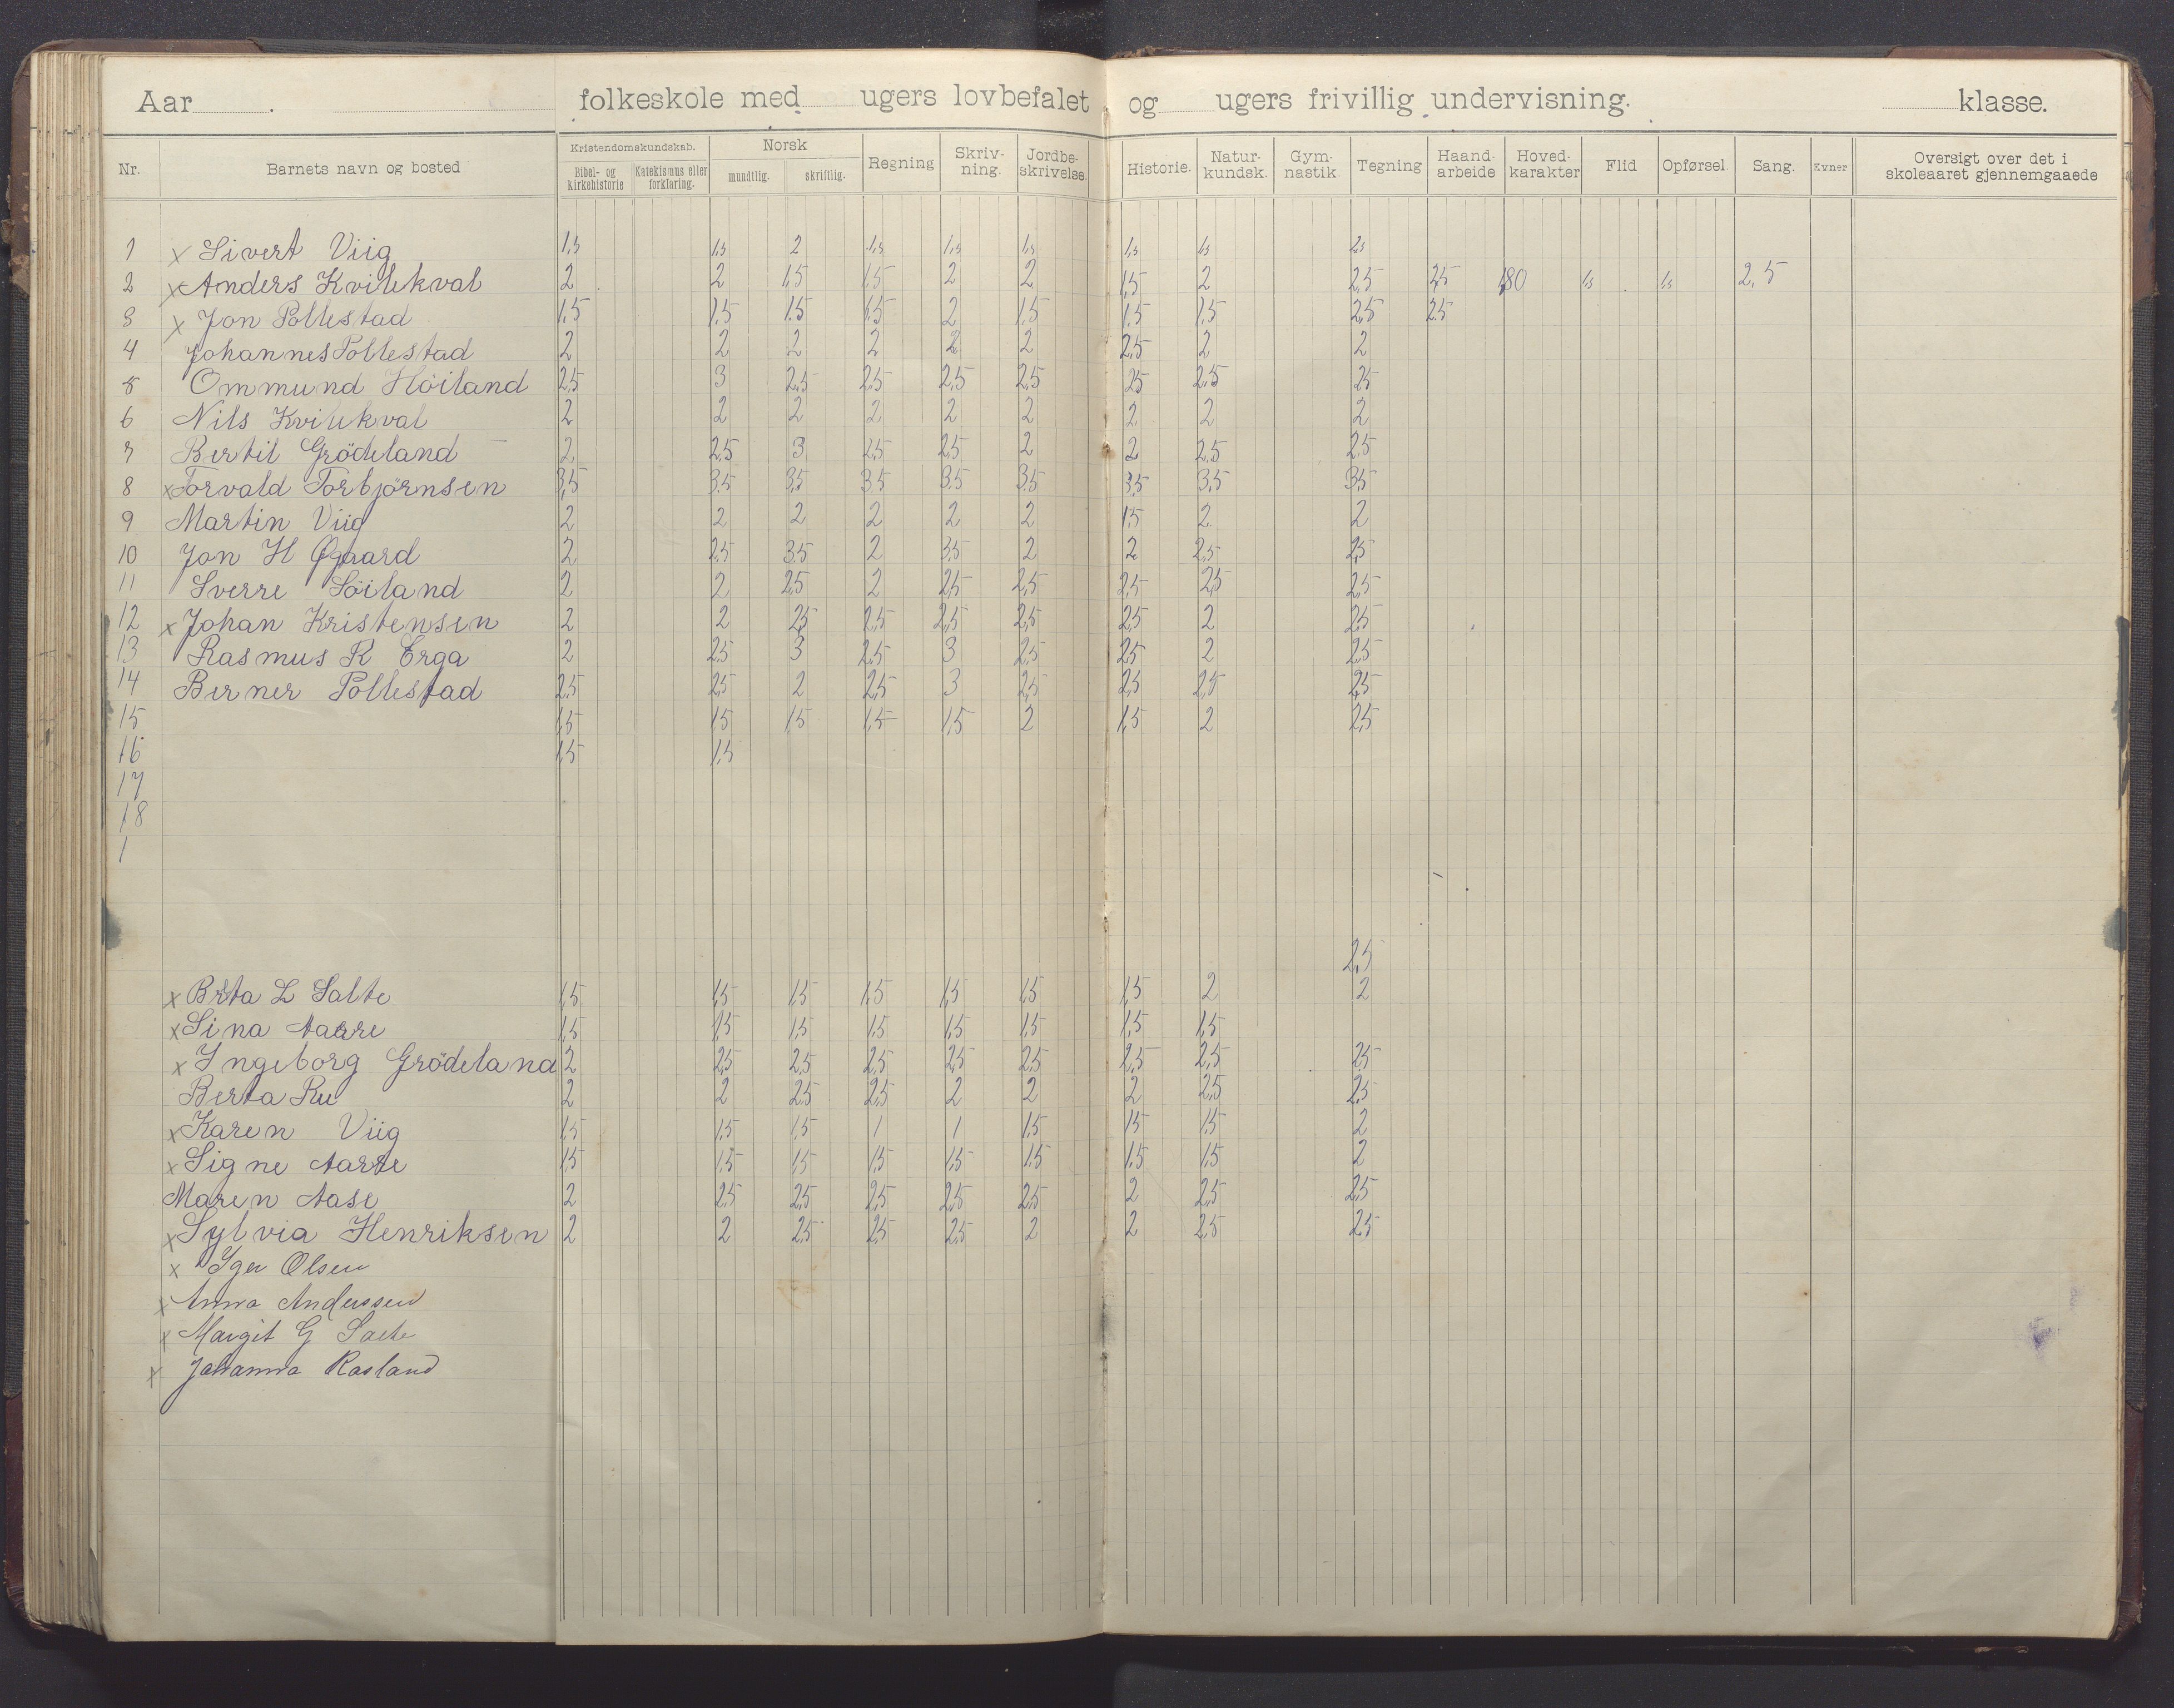 Aar . folkeskole med ugers lovbefalet og ugers frivillig undervisning. klasse.
Nr. Barnets navn og bosted Kristendomskundskab. Bibel- og kirkehistorie Katekismus eller forklaring. Norsk mundtlig. skriftlig. Regning Skriv-ning. Jordbe-skrivelse. Historie. Natur-kundsk. Gym-nastik Tegning Haand-arbeide Hoved-karakter Flid Opførsel. Sang. Evner Oversigt over det i skoleaaret gjennemgaaede
1 x Sivert Viig 1,5 1,5 2 1,5 1,5 1,5 1,5 1,5 2,5
2 x Anders Kvilekval 2 2 1,5 1,5 2 2 1,5 2 2,5 2,5 1,80 1,5 1,5 2,5
3 x Jon Pollestad 1,5 1,5 1.5 1,5 2 1,5 1,5 1,5 2,5 2.5
4 Johannes Pollestad 2 2 2 2 2 2 2,5 2 2
5 Ommund Höiland 2,5 3 2,5 2,5 2,5 2,5 2,5 2,5 2,5
6 Nils Kvilekval 2 2 2 2 2 2 2 2 2
7 Bertil Grödeland 2 2,5 3 2,5 2,5 2 2 2,5 2,5
8 x Torvald Torbjørnsen 3,5 3,5 3,5 3,5 3,5 3,5 3,5 3,5 3,5
9 Martin Viig 2 2 2 2 2 2 1,5 2 2
10 Jon H Øgaard 2 2,5 3,5 2 3,5 2 2 2,5 2,5
11 Sverre Söiland 2 2 2,5 2 2,5 2,5 2,5 2,5 2,5
12 x Johan Kristensen 2 2 2,5 2,5 2,5 2,5 2,5 2 2,5
13 Rasmus R Erga 2 2,5 3 2,5 3 2,5 2,5 2 2,5
14 Berner Pollestad 2,5 2,5 2 2,5 3 2,5 2,5 2,5 2,5
15 1,5 1,5 1,5 1,5 1,5 2 1,5 2 2,5
16 1,5 1,5
17
18
1
2,5
x Brta L Salte 1,5 1,5 1,5 1,5 1,5 1,5 1,5 2 2
x Sina Aarre 1,5 1,5 1,5 1,5 1,5 1,5 1,5 1,5
x Ingeborg Grödeland 2 2,5 2,5 2,5 2,5 2,5 2,5 2,5 2,5
Berta Ru 2 2 2,5 2,5 2 2 2 2,5 2,5
x Karen Viig 1,5 1,5 1,5 1 1 1,5 1,5 1,5 2
x Signe Aarre 1,5 1,5 1,5 1,5 1,5 1,5 1,5 1,5 2
Maren Aase 2 2,5 2,5 2,5 2,5 2,5 2 2,5 2,5
x Sylvia Henriksen 2 2 2,5 2,5 2,5 2 2 2,5 2,5
x Olsen
x Anna Anderssen
x Margit G Salte
x Johanna Rasland